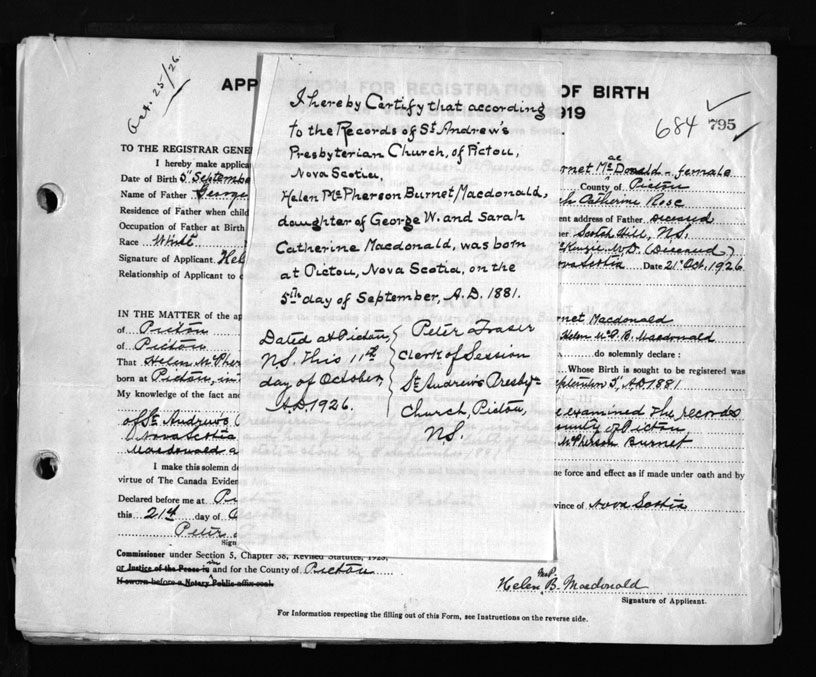 Oct. 25/26.
APP
OF BIRTH
919
684 795
TO THE REGISTRAR GENE
I hereby make applica
Date of Birth 5th Septembe
Name of Father George
Residence of Father when child
Occupation of Father at Birth
Race White
Signature of Applicant. Hel
Relationship of Applicant to c
rnet MacDonald - female
County of Pictou
h Catherine Rose
ent address of Father Deceased
Scotch Hill, N.S.
McKenzie, M.D. (Deceased)
Nova Scotia Date 21st Oct. 1926
I hereby Certify that according
to the Records of St Andrew's
Presbyterian Church, of Pictou,
Nova Scotia,
Helen McPherson Burnet Macdonald,
daughter of George W. and Sarah
Catherine Macdonald, was born
at Pictou, Nova Scotia, on the
5th day of September, A.D. 1881.
Dated at Pictou,
N.S. This 11th
day of October,
A.D. 1926.
Peter Fraser
Clerk of Session
St Andrew's Presbyn
Church, Pictou,
N.S.
IN THE MATTER of the ap
of Pictou
of Pictou
That Helen McPher
born at Pictou, in
My knowledge of the fact and
of St. Andrew's
Nova Scotia
Macdonald a
I make this solemn de
virtue of The Canada Eviden
Declared before me at Pi
this 21st day of O
Peter
Sign
rnet Macdonald
Helen McP. B. Macdonald
do solemnly declare :
Whose Birth is sought to be registered was
eptember 5th, A.D. 1881
e examined the records
ounty of Pictou,
McPherson Burnet
e force and effect as if made under oath and by
vince of Nova Scotia
Commissioner under Section 5, Chapter 38, Revised Statutes, 1923,
or Justice of the Peace in and for the County of Pictou
If sworn before a Notary Public affix seal.
Helen McP. B. Macdonald
Signature of Applicant.
For Information respecting the filling out of this Form, see Instructions on the reverse side.